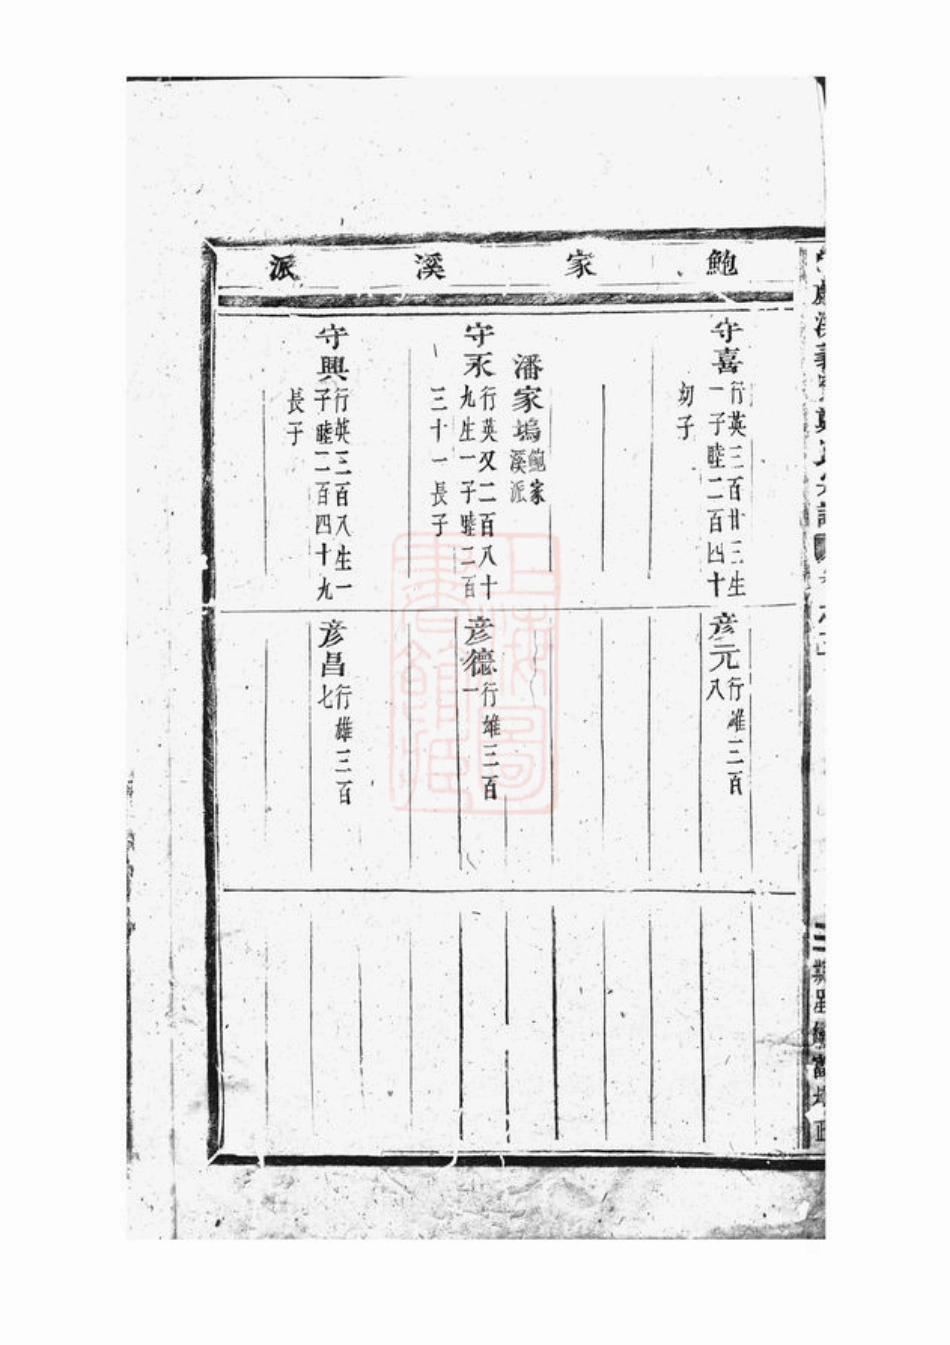 鮑家溪派
守喜
行英三百廿三生
一子睦二百四十
幼子
彥元
行雄三百
八
潘家塢
鮑家
溪派
守永
行英又二百八十
九生一子睦二百
三十一長子
彥德
行雄三百
一
守興
行英三百八生一
子睦二百四十九
長子
彥昌
行雄三百
七